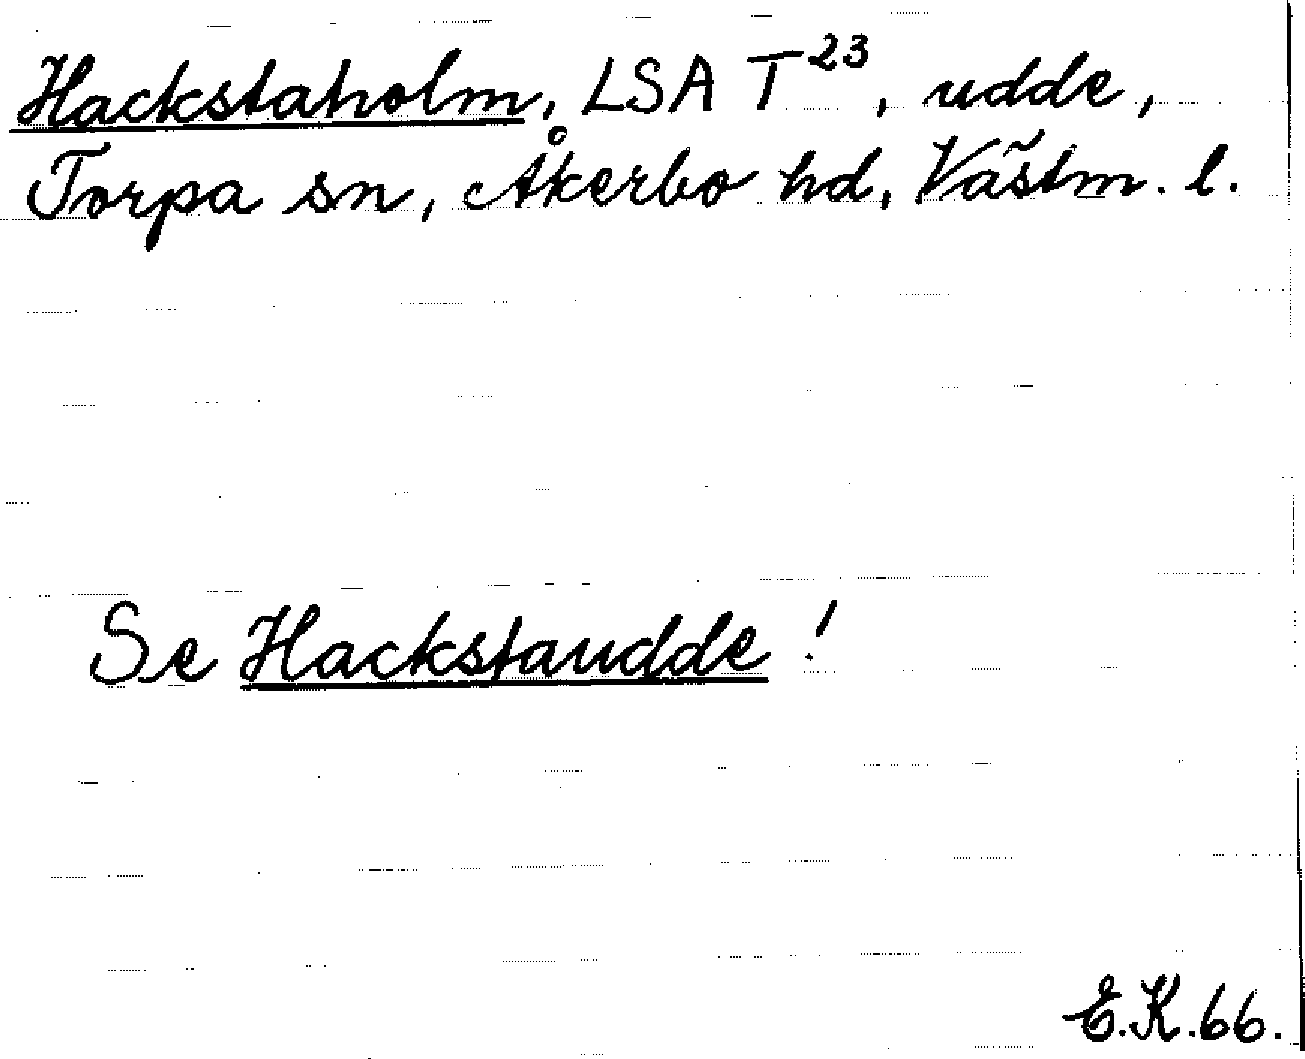 Hackstaholm, LSA T²³, udde,
Torpa sn, Åkerbo hd, Västm. l.
Se Hackstaudde !
E.K.66.